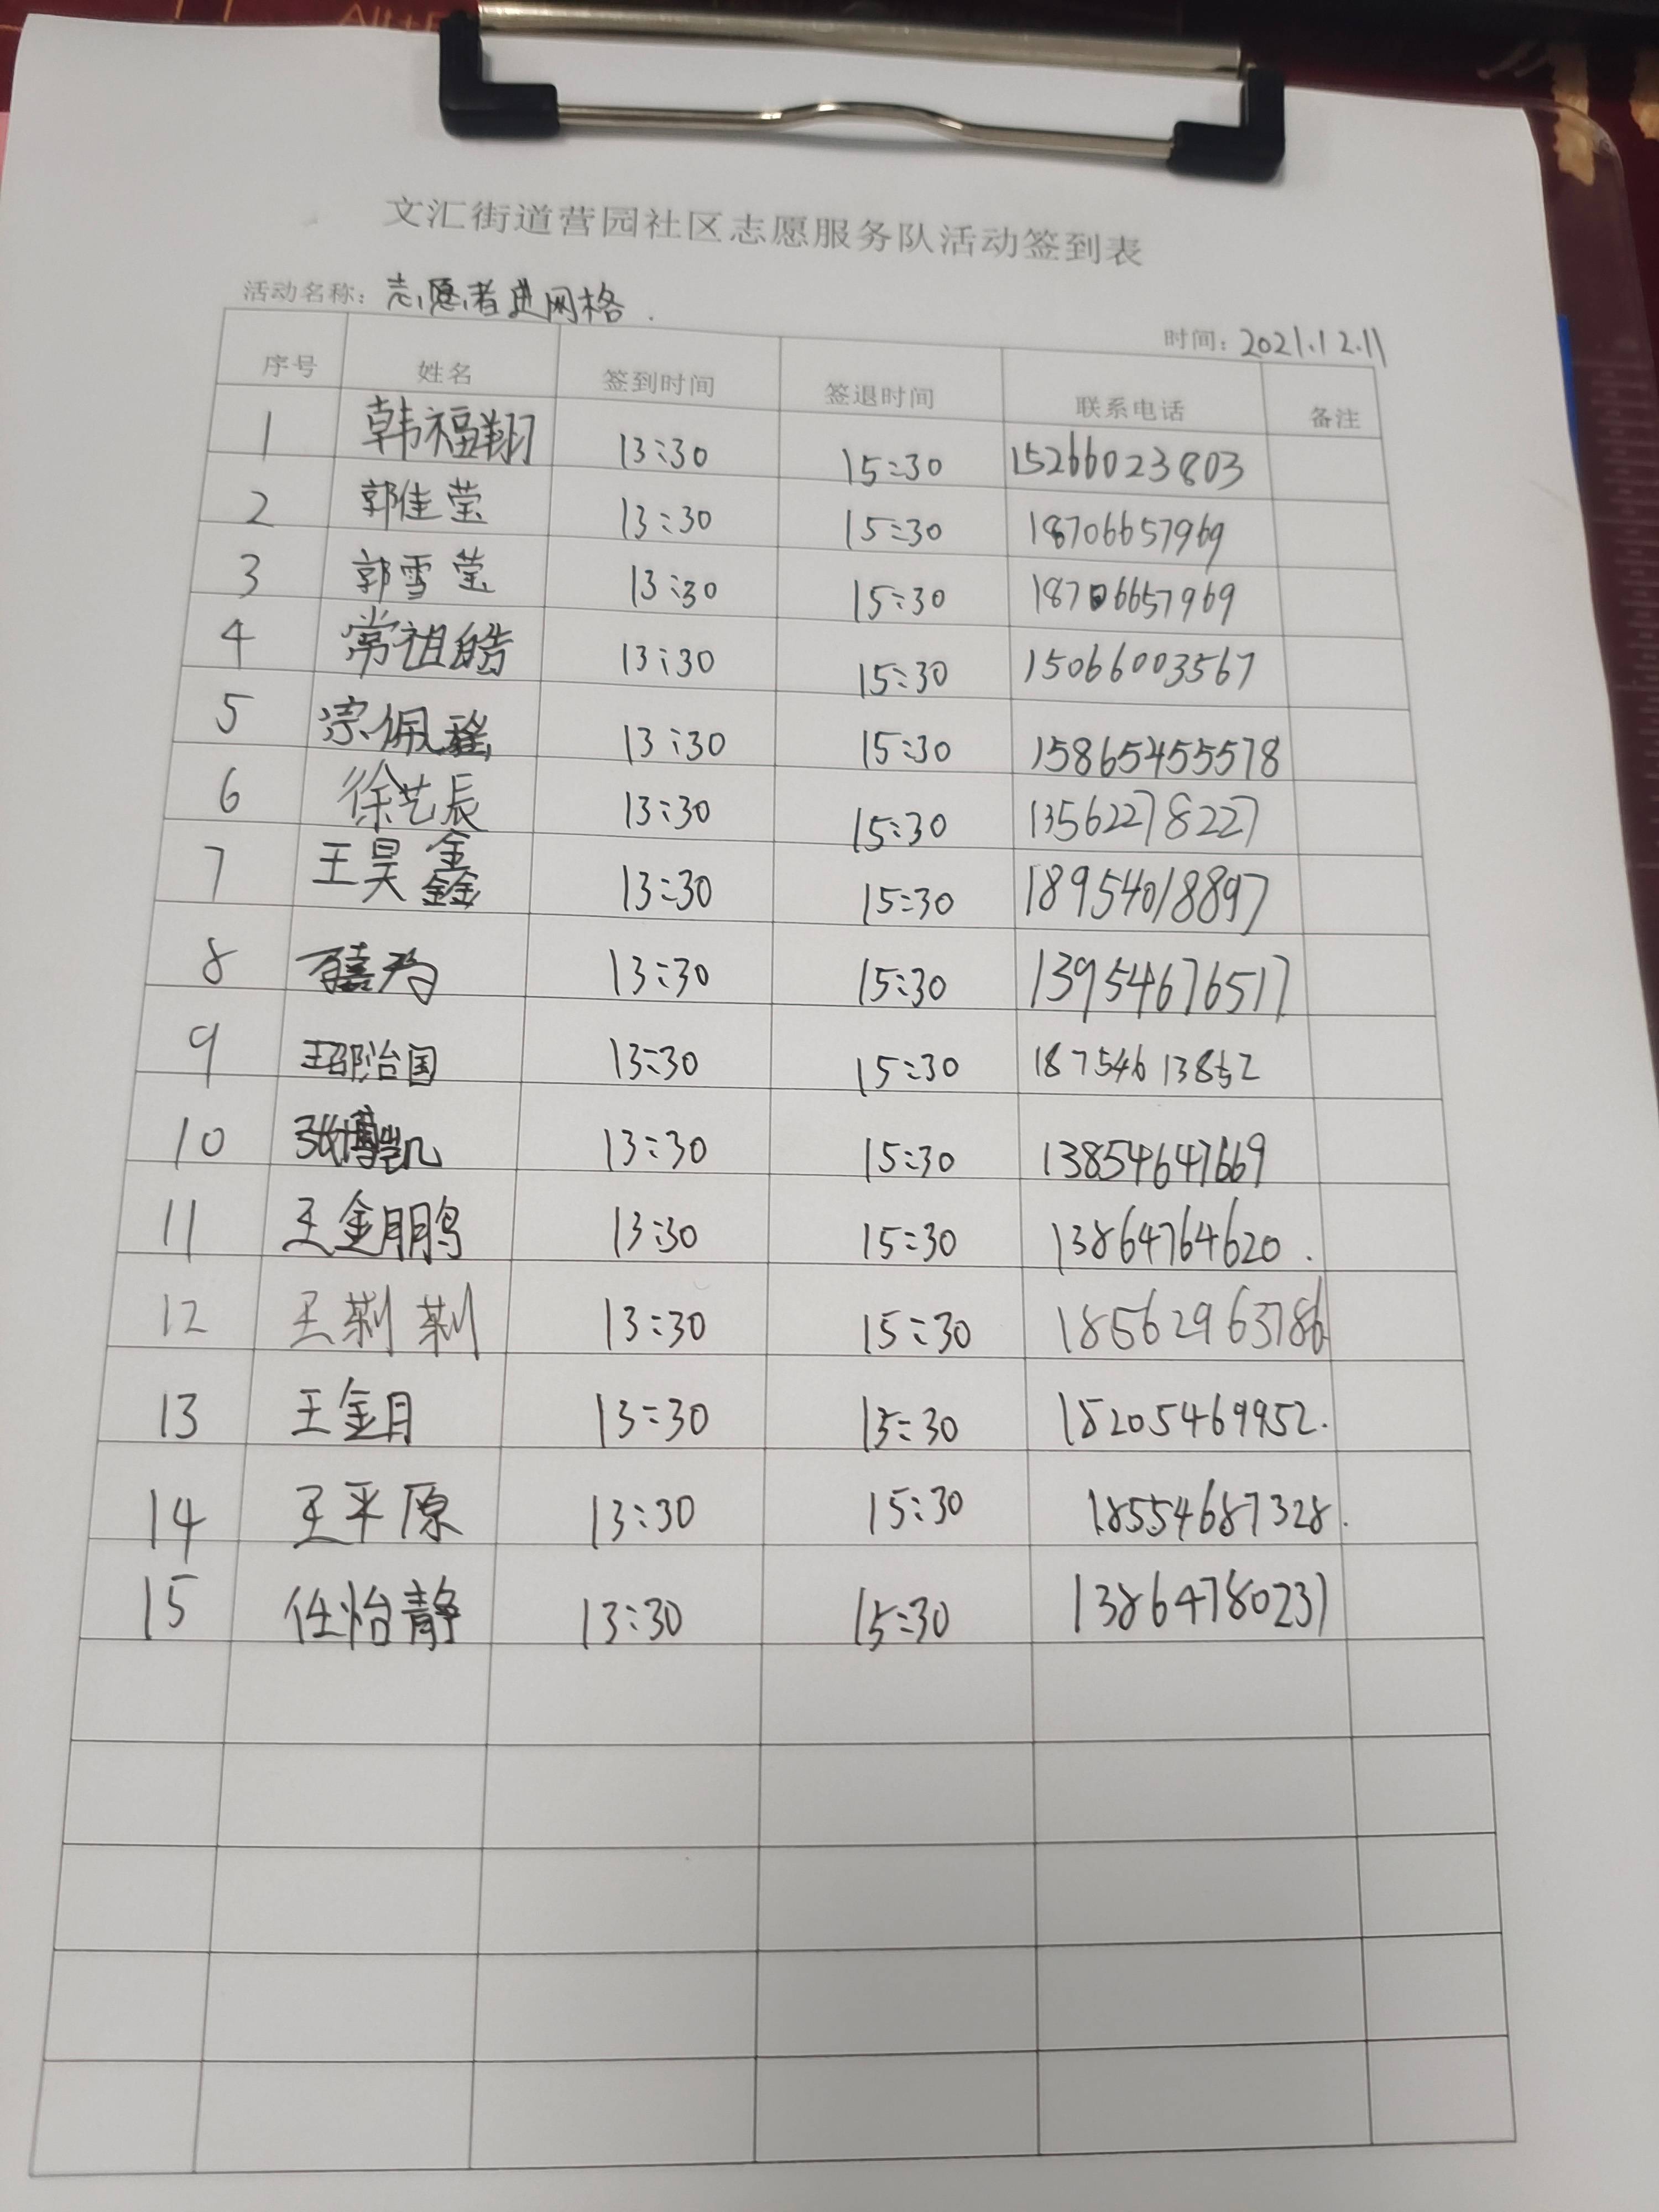 文汇街道营园社区志愿服务队活动签到表
活动名称：志愿者进网格.
时间：2021.12.11
序号 姓名 签到时间 签退时间 联系电话 备注
1 韩福翔 13:30 15:30 15266023803
2 郭佳莹 13:30 15:30 18706657969
3 郭雪莹 13:30 15:30 18706657969
4 常祖皓 13:30 15:30 15066003567
5 宗佩瑶 13:30 15:30 15865455578
6 徐艺辰 13:30 15:30 13562278227
7 王昊鑫 13:30 15:30 18954018897
8 13:30 15:30 13954676517
9 治国 13:30 15:30 18754613852
10 张博凯 13:30 15:30 13854647669
11 王金鹏 13:30 15:30 13864764620.
12 王 13:30 15:30 18562963786
13 王金月 13:30 15:30 18205469952.
14 王平原 13:30 15:30 18554687328.
15 任怡静 13:30 15:30 13864780231